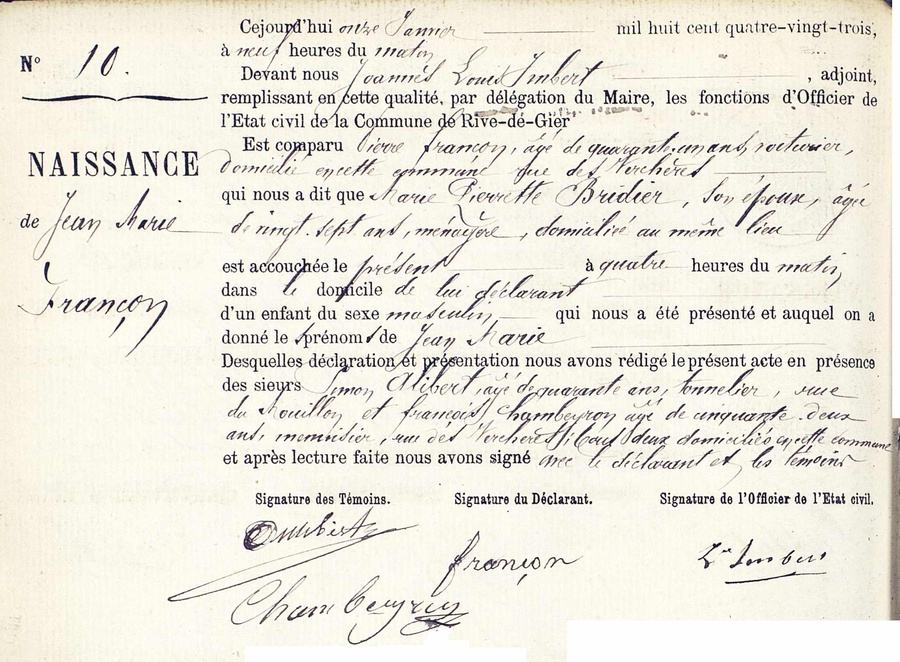 N° 10.
NAISSANCE
de Jean Marie
Françon
Cejourd'hui onze Janvier mil huit cent quatre-vingt-trois,
à neuf heures du matin
Devant nous Joannès Louis Imbert , adjoint,
remplissant en cette qualité, par délégation du Maire, les fonctions d'Officier de
l'Etat civil de la Commune de Rive-de-Gier
Est comparu Pierre françon, âgé de quarante-un ans, voiturier,
domicilié en cette commune rue des Verchères
qui nous a dit que Marie Pierrette Bridier, son épouse, âgée
de vingt-sept ans, ménagère, domiciliée au même lieu
est accouchée le présent à quatre heures du matin,
dans le domicile de lui déclarant
d'un enfant du sexe masculin, qui nous a été présenté et auquel on a
donné le prénom de Jean Marie
Desquelles déclaration et présentation nous avons rédigé le présent acte en présence
des sieurs Simon Alibert, âgé de quarante ans, tonnelier, rue
du Mouillon et françois Chambeyron âgé de cinquante-deux
ans, menuisier, rue des Verchères, tous deux domiciliés en cette commune
et après lecture faite nous avons signé avec le déclarant et les témoins
Signature des Témoins. Signature du Déclarant. Signature de l'Officier de l'Etat civil.
françon
Ls Imbert